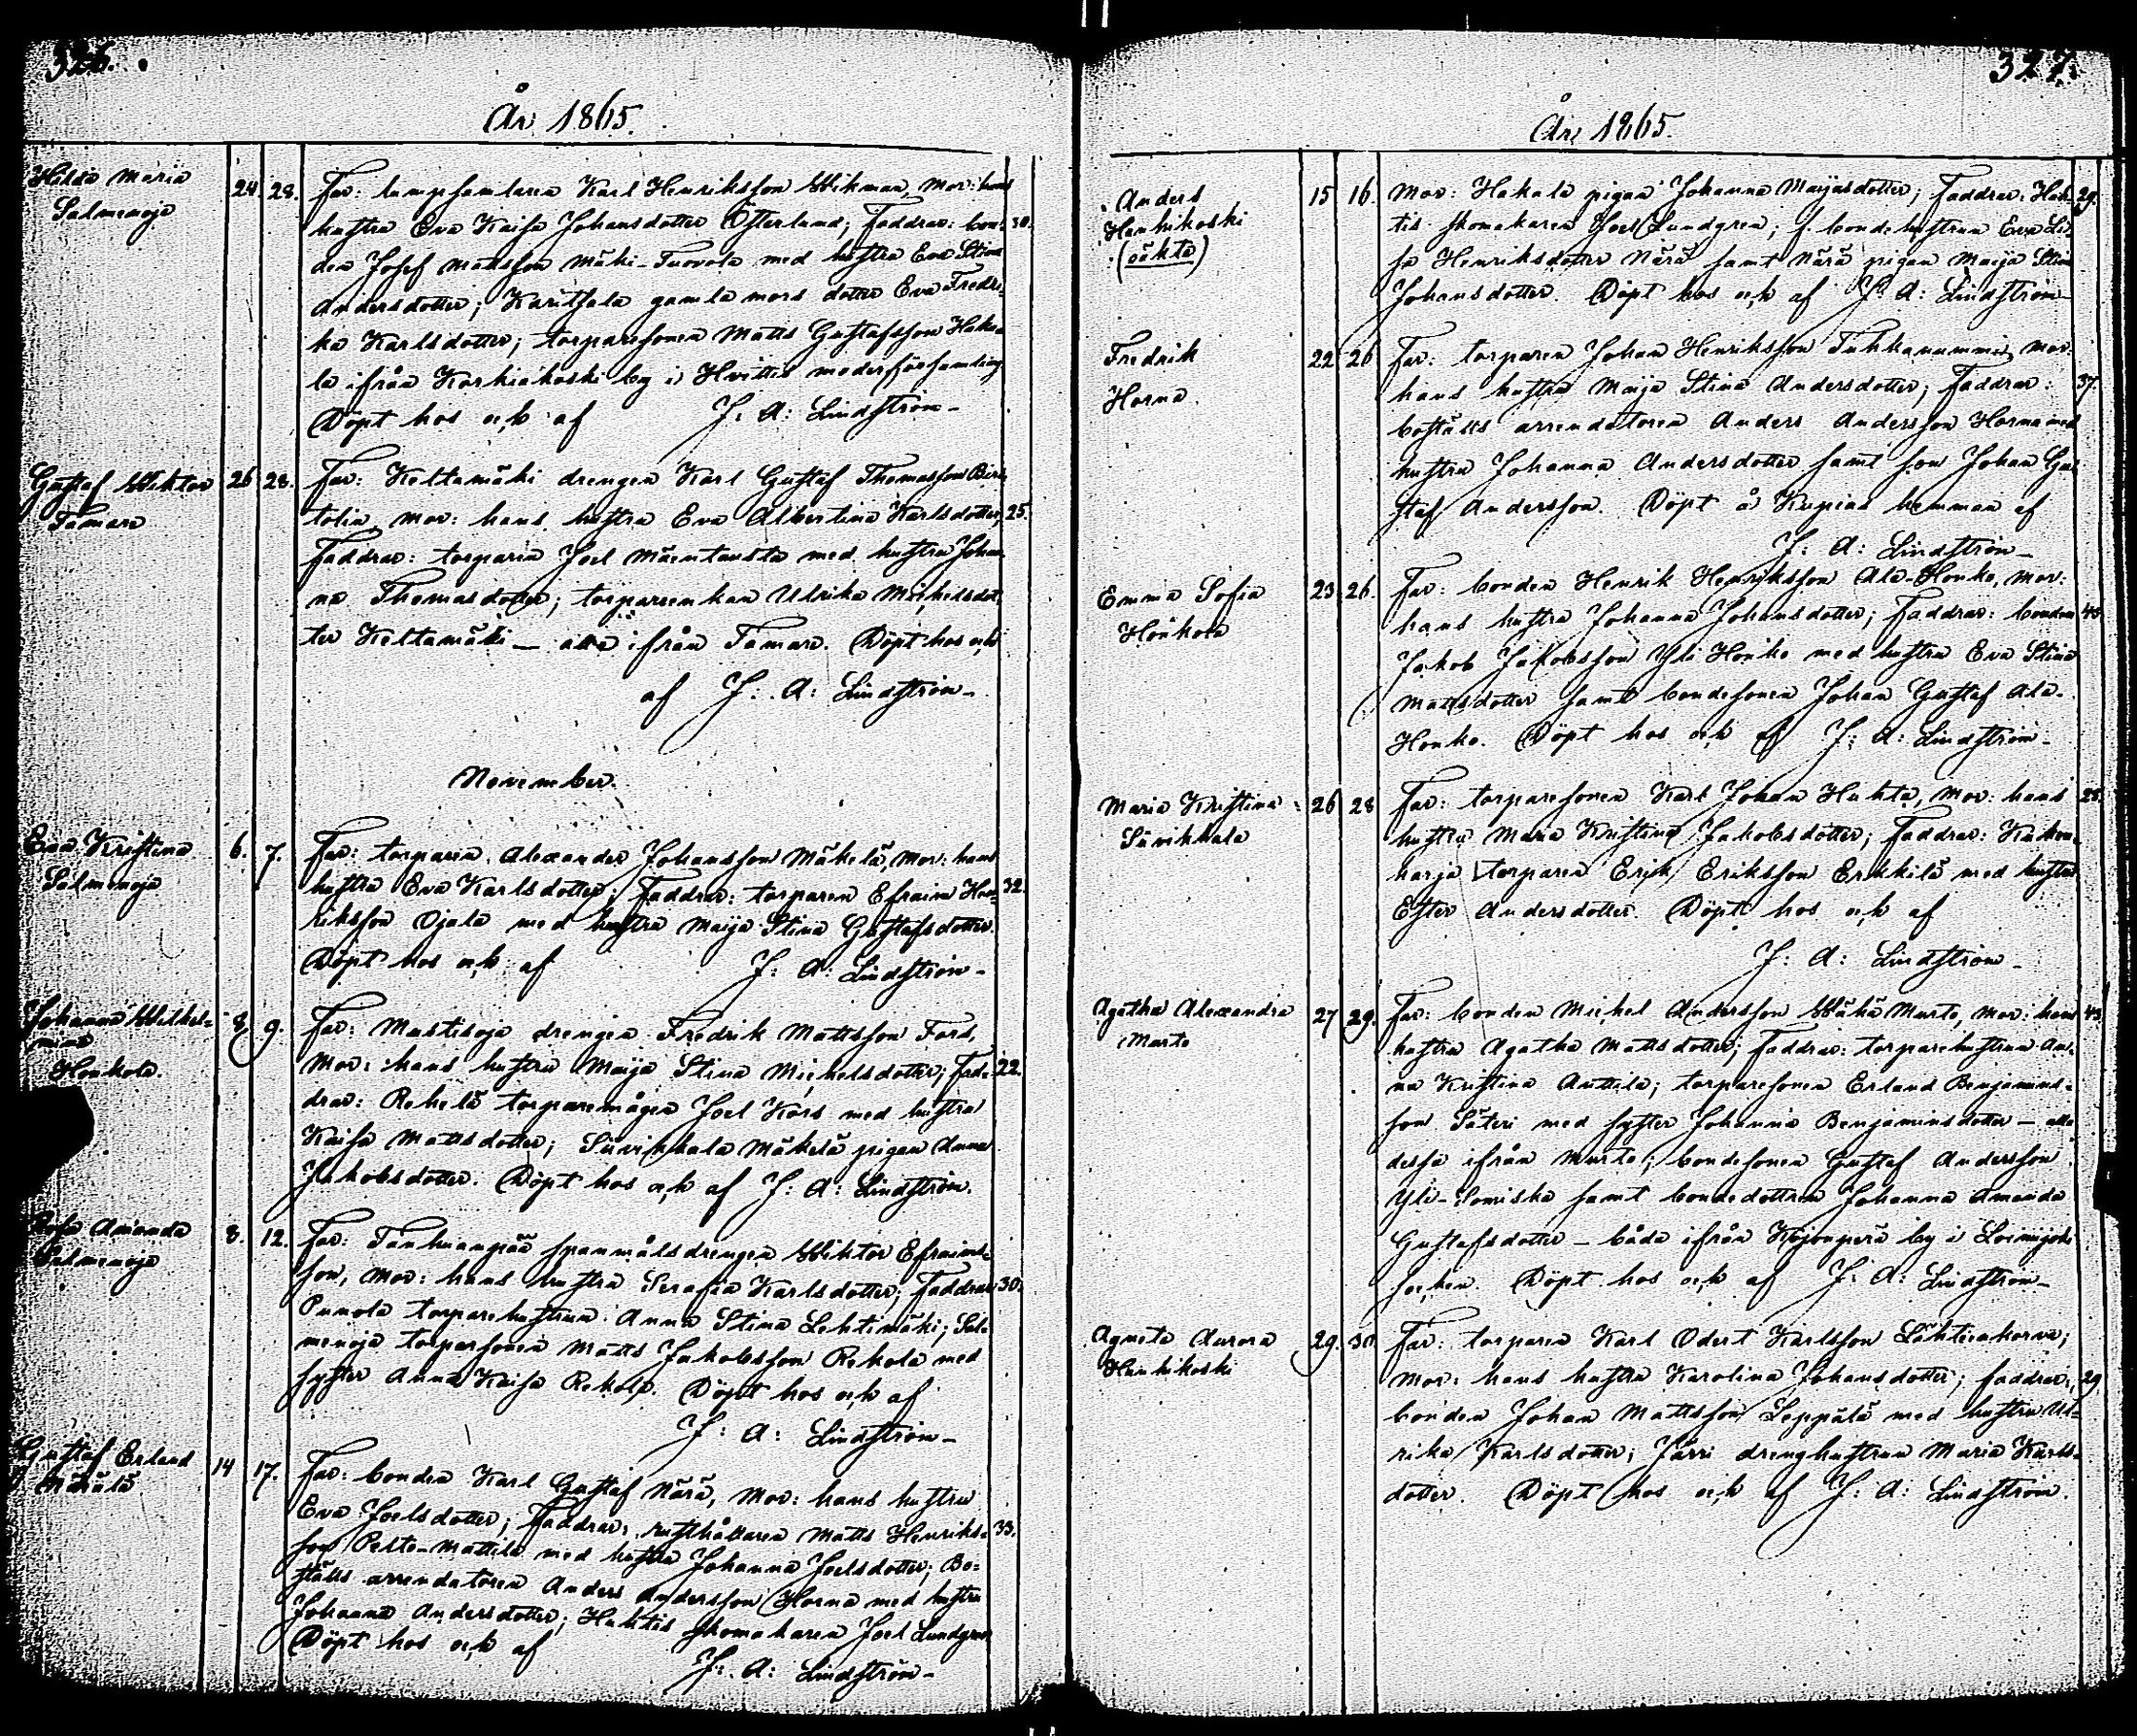 326.
År 1865.
Hilda Maria
Salmenoja
24. 28.
Far: lumpsamlaren Karl Henriksson Wikman, Mor: hans
hustru Eva Kaisa Johansdotter Österlund; Faddrar: bon- 30.
den Josef Mattsson Mäki-Tuovola med hustru Eva Stina
Andersdotter; Karitsala gamla mors dotter Eva Fredri-
ka Karlsdotter; torparesonen Matts Gustafsson Hako-
la ifrån Korkiakoski by i Hvittis moderförsamling
Döpt hos och af J: A: Lindström-
Gustaf Wiktor
Tamare
26 28.
Far: Keltamäki drengen Karl Gustaf Thomasson
tolin, Mor: hans hustru Eva Albertina Karlsdotter, 25.
Faddrar: torparen Joel Mäentausta med hustru Johan-
na Thomasdotter; torpareenkan Ulrika Michelsdot-
ter Keltamäki — alla ifrån Tamare. Döpt hos och
af J: A: Lindström-
November.
Eva Kristina
Salmenoja
6. 7.
Far: torparen Alexander Johansson Mäkelä, Mor: hans
hustru Eva Karlsdotter; Faddrar: torparen Efraim Hen- 32.
riksson Ojala med hustru Maija Stina Gustafsdotter.
Döpt hos och af J: A: Lindström-
Johanna Wilhel-
mina
Honkola.
8. 9.
Far: Mustisoja drengen Fredrik Mattsson Fors,
Mor: hans hustru Maija Stina Michelsdotter; Fad- 22.
drar: Rehelä torparemågen Joel Kors med hustru
Kaisa Mattsdotter; Suvikkala Mäkelä pigan Anna
Jakobsdotter. Döpt hos och af J: A: Lindström.
Amanda
Salmenoja
8. 12.
Far: Tanhuanpää spanmålsdrengen Wiktor Efraims-
son, Mor: hans hustru Serafia Karlsdotter; Faddrar 30.
Punola torparehustrun Anna Stina Lehtimäki; Sal-
menoja torparsonen Matts Jakobsson Rekola med
syster Anna Kaisa Rekola. Döpt hos och af
J: A: Lindström-
Gustaf Erland
Närälä
14 17.
Far: bonden Karl Gustaf Närä, Mor: hans hustru
Eva Joelsdotter; Faddrar: rusthållaren Matts Henriks- 33.
son Pelto-Mattila med hustru Johanna Joelsdotter; Bo-
ställs arrendatoren Anders Andersson Horna med hustru
Johanna Andersdotter; Huhtis skomakaren Joel Lundgren
Döpt hos och af
J: A: Lindström-
327.
År 1865.
Anders
Hanhikoski
(oäkta)
15 16.
Mor: Hakala pigan Johanna Maijasdotter; Faddrar: Huh- 29.
tis skomakaren Joel Lundgren; f. bondehustrun Eva Li-
sa Henriksdotter Närä samt Närä pigan Maija Stina
Johansdotter. Döpt hos och af J: A: Lindström-
Fredrik
Horna.
22 26
Far: torparen Johan Henriksson Tuhkanummi, Mor:
hans hustru Maija Stina Andersdotter; Faddrar: 37.
boställs arrendatoren Anders Andersson Horna med
hustru Johanna Andersdotter samt son Johan Gu-
staf Andersson. Döpt å Kupias hemman af
J: A: Lindström-
Emma Sofia
Honkola
23 26.
Far: bonden Henrik Henriksson Ala-Honko, Mor:
hans hustru Johanna Johansdotter; Faddrar: bonden
Jakob Jakobsson Yli Honko med hustru Eva Stina
Mattsdotter samt bondesonen Johan Gustaf Ala-
Honko. Döpt hos och af J: A: Lindström-
Maria Kristina
Suvikkala
26 28
Far: torparesonen Karl Johan Huhta, Mor: hans 28.
hustru Maria Kristina Jakobsdotter; Faddrar:
harja torparen Erik Eriksson Erkkilä med hustru
Ester Andersdotter. Döpt hos och af
J: A: Lindström-
Agatha Alexandra
Murto
27 29.
Far: bonden Michel Andersson Wähä Murto, Mor: hans 43.
hustru Agatha Mattsdotter; Faddrar: torparehustrun An-
na Kristina Anttila; torparesonen Erland Benjamins-
son Säteri med syster Johanna Benjaminsdotter — alla
dessa ifrån Murto; bondesonen Gustaf Andersson
Yli-Soniska samt bondedottren Johanna Amanda
Gustafsdotter — båda ifrån Kojonperä by i Loimijoki
socken. Döpt hos och af J: A: Lindström-
Agneta Aurora
Hanhikoski
29. 30.
Far: torparen Karl Odert Karlsson Lähteenkorva;
Mor: hans hustru Karolina Johansdotter; Faddrar: 29.
bonden Johan Mattsson Seppälä med hustru Ul-
rika Karlsdotter; Järvi drenghustrun Maria Karls-
dotter. Döpt hos och af J: A: Lindström.